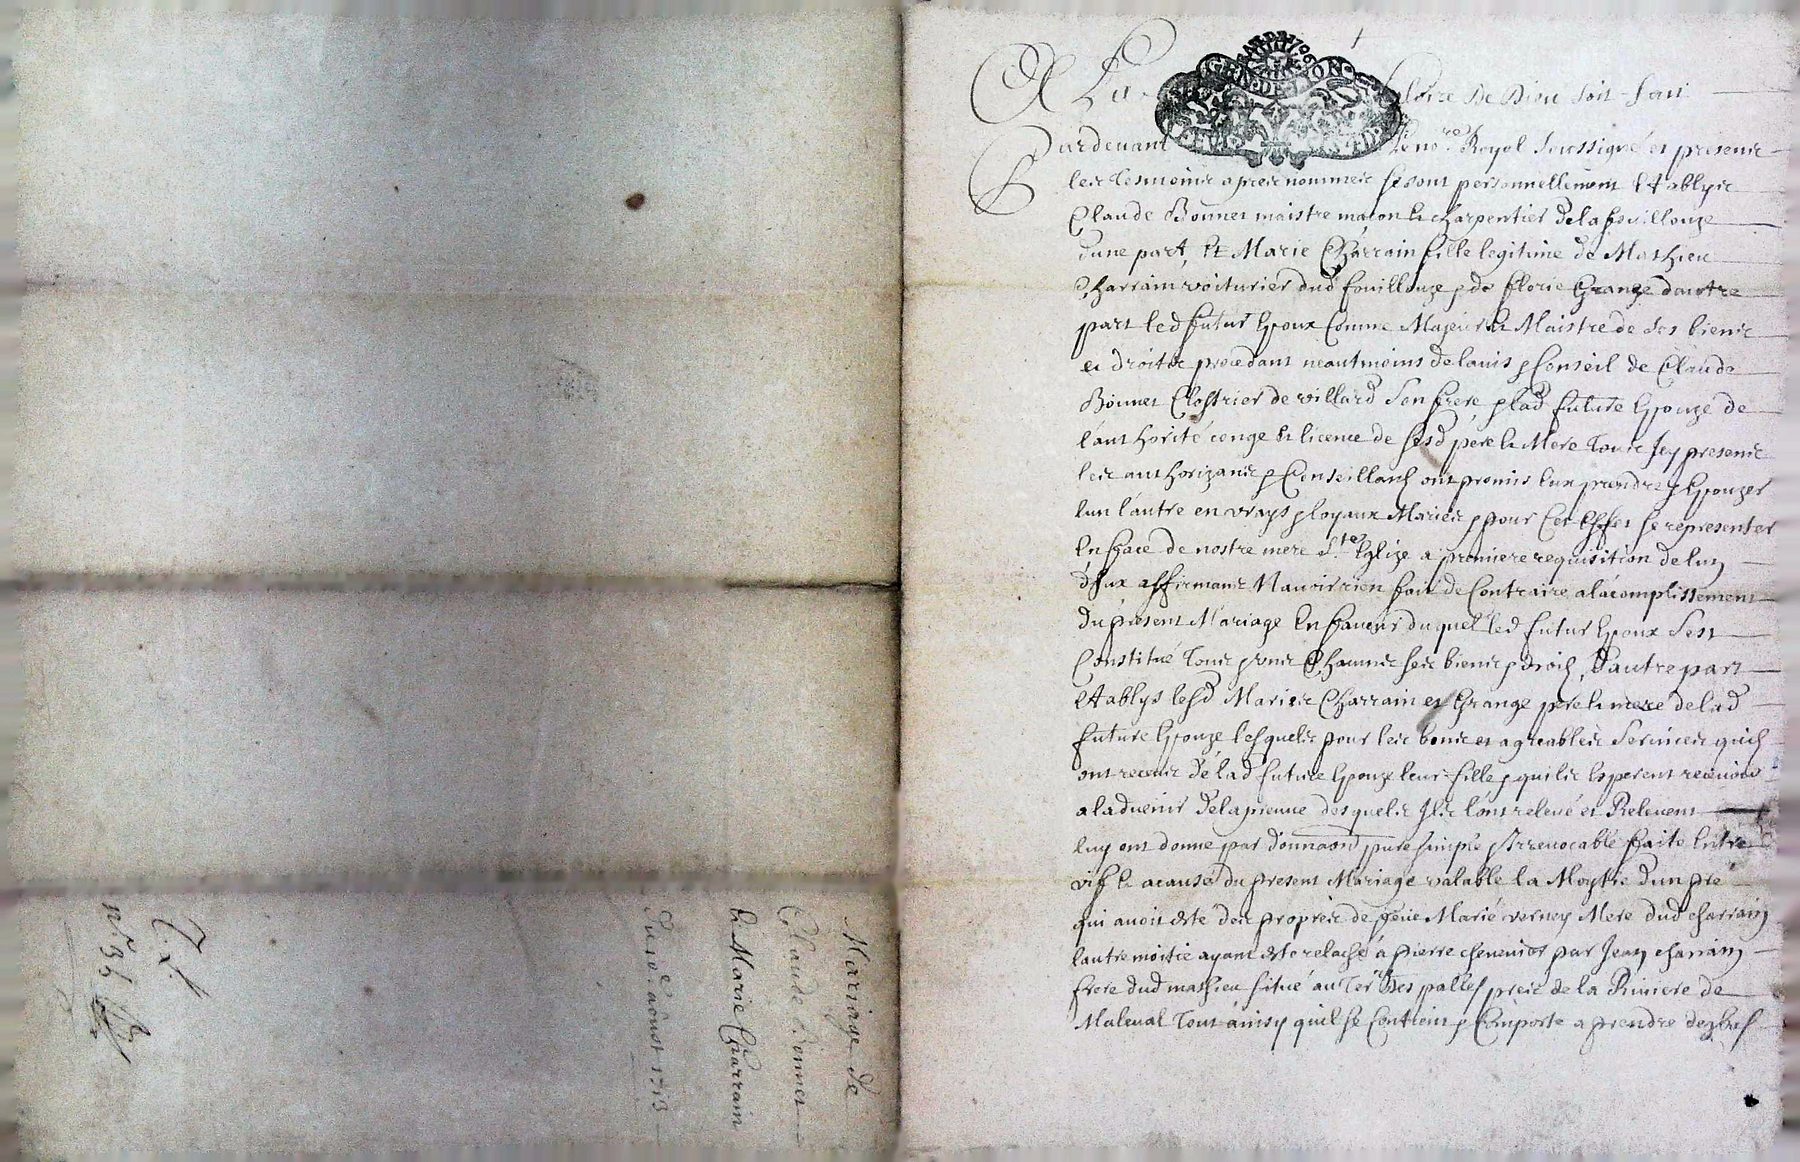 A La gloire De Dieu Soit-fait
Pardevant le no.re Royal Soussigné et presents
les tesmoins apres nommes se sont personnellement Etablys
Claude Bonnet maistre mason & charpentier de la fouillouze
dune part, Et Marie Charrain fille legitime de Mathieu
Charrain voiturier dud fouillouze & de florie Grange dautre
part led futur Epoux Comme Majeur & Maistre de ses biens
et droits procedant neantmoins de lavis & Conseil de Claude
Bonnet Clostrier de villard Son frere & lad future Epouze de
l'authorité conge & licence de sesd pere & Mere tous Icy presents
les authorizants & Conseillants ont promis Eux prendre & Epouzer
lun l'autre en vrays & loyaux Maries & pour Cet Effet se representer
En face de nostre mere S.te Eglize a premiere requisition de lun
d'Eux affirmants N'avoir rien fait de Contraire a l'acomplissement
du present Mariage En faveur duquel led futur Epoux Sest
Constitué tous & uns Chacuns ses biens & droits, D'autre part
Etablys lesd Maries Charrain et Grange pere & mere de lad
future Epouze lesquels pour les bons et agreables Services quils
ont receus de lad future Epouze leur fille & quils Esperent recevoir
a ladvenir de la preuve desquels Ils l'ont relevé et Relevent
luy ont donné par donnaon pure simple & Irrevocable faite Entre
vifs & a cause du present Mariage valable la Moytié dun pré
qui avoit esté des propres de Marie verney Mere dud charrain
lautre moitié ayant esté relaché a pierre par Jean charrain
frere dud mathieu situé au Ter des palles pres de la Riviere de
Maleval tout ainsy quil se Contient & Comporte a prendre
Mariage de
Claude Bonnet
& Marie Charrain
Du aoust 1713
n.o 35